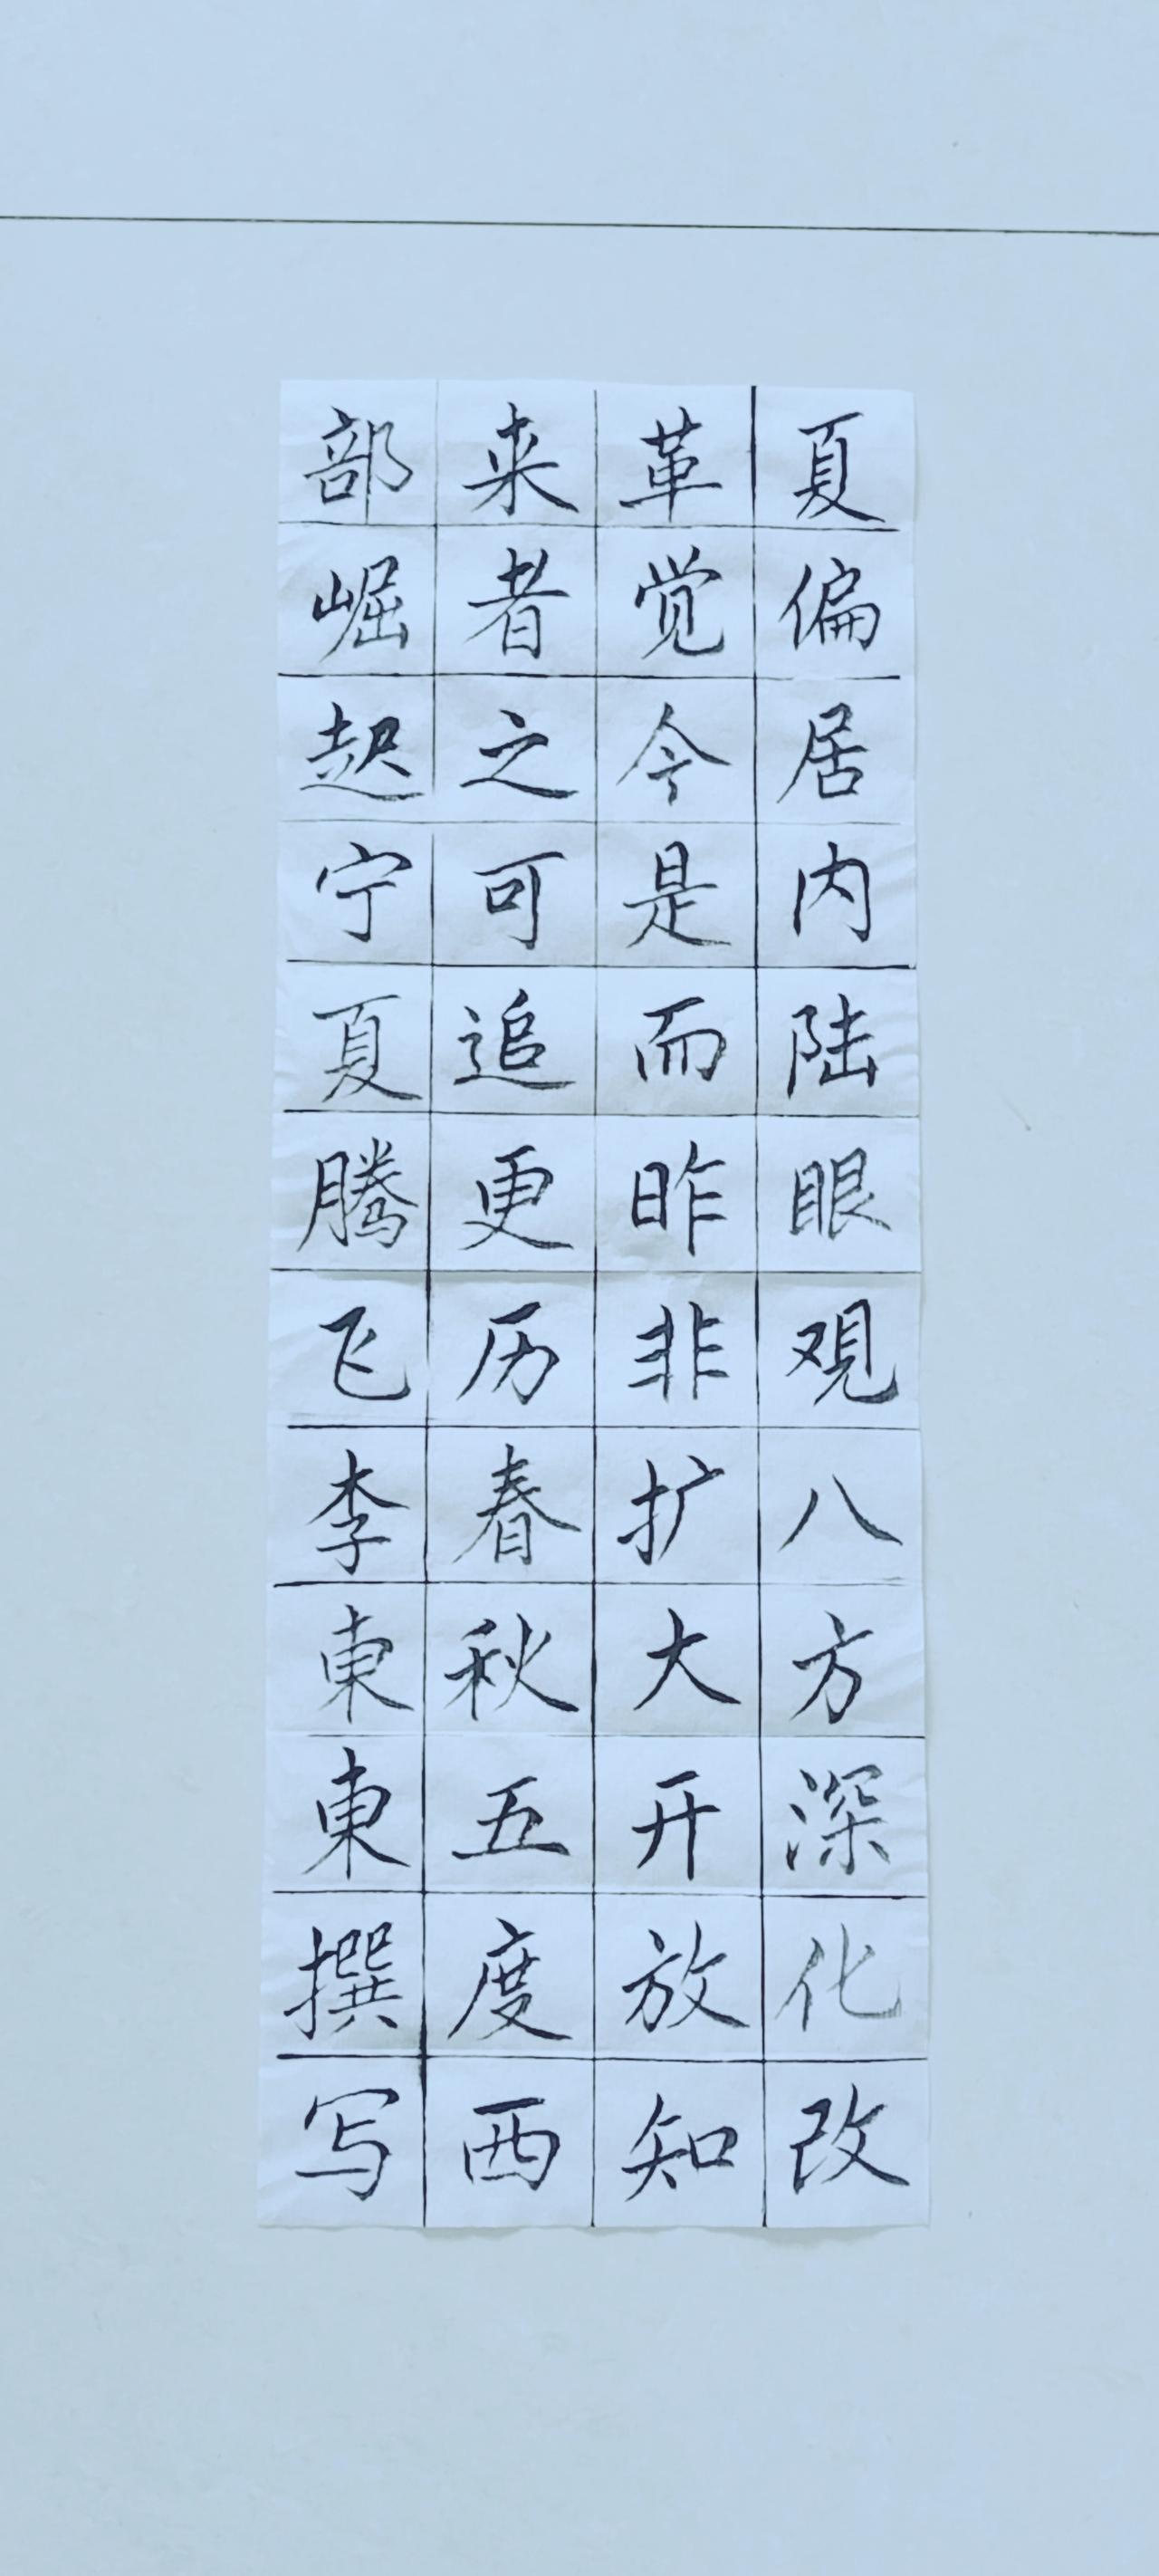 夏偏居内陆眼观八方深化改
革觉今是而昨非扩大开放知
来者之可追更历春秋五度西
部崛起宁夏腾飞李東東撰写